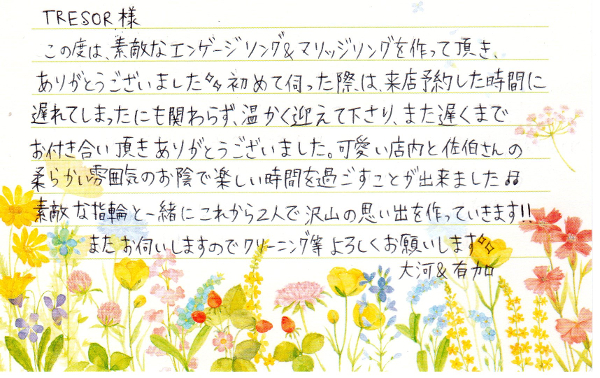 TRESOR様
この度は、素敵なエンゲージリング&マリッジリングを作って頂き、
ありがとうございました✨初めて伺った際は、来店予約した時間に
遅れてしまったにも関わらず、温かく迎えて下さり、また遅くまで
お付き合い頂きありがとうございました。可愛い店内と佐伯さんの
柔らかい雰囲気のお陰で楽しい時間を過ごすことが出来ました♫
素敵な指輪と一緒にこれから2人で沢山の思い出を作っていきます!!
またお伺いしますのでクリーニング等よろしくお願いします✨
大河&有加